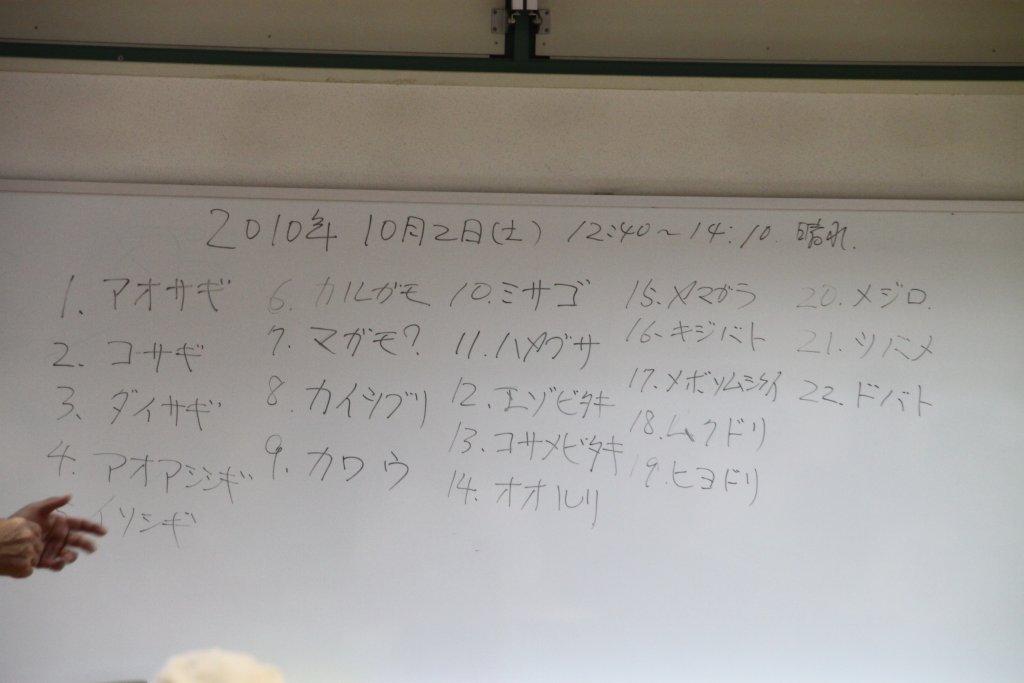 2010年 10月2日(土) 12:40～14:10. 晴れ.
1. アオサギ
2. コサギ
3. ダイサギ
4. アオアシシギ
イソシギ
6. カルガモ
7. マガモ?
8. カイツブリ
9. カワウ
10. ミサゴ
11. ハチクマ
12. エゾビタキ
13. コサメビタキ
14. オオルリ
15. ヤマガラ
16. キジバト
17. メボソムシクイ
18. ムクドリ
19. ヒヨドリ
20. メジロ.
21. ツバメ
22. ドバト